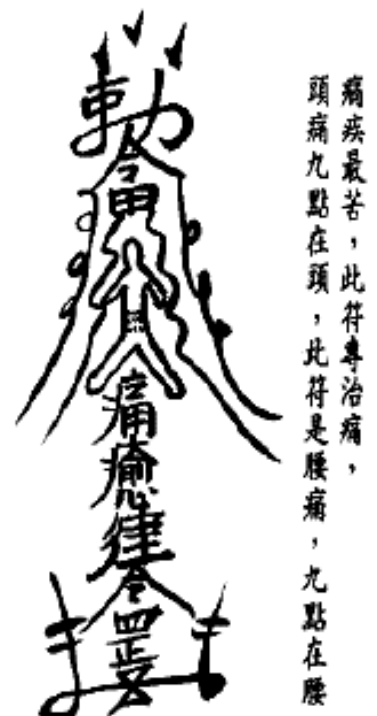 痛疾最苦，此符專治痛，
頭痛九點在頭，此符是腰痛，九點在腰
勅令
痛癒律令